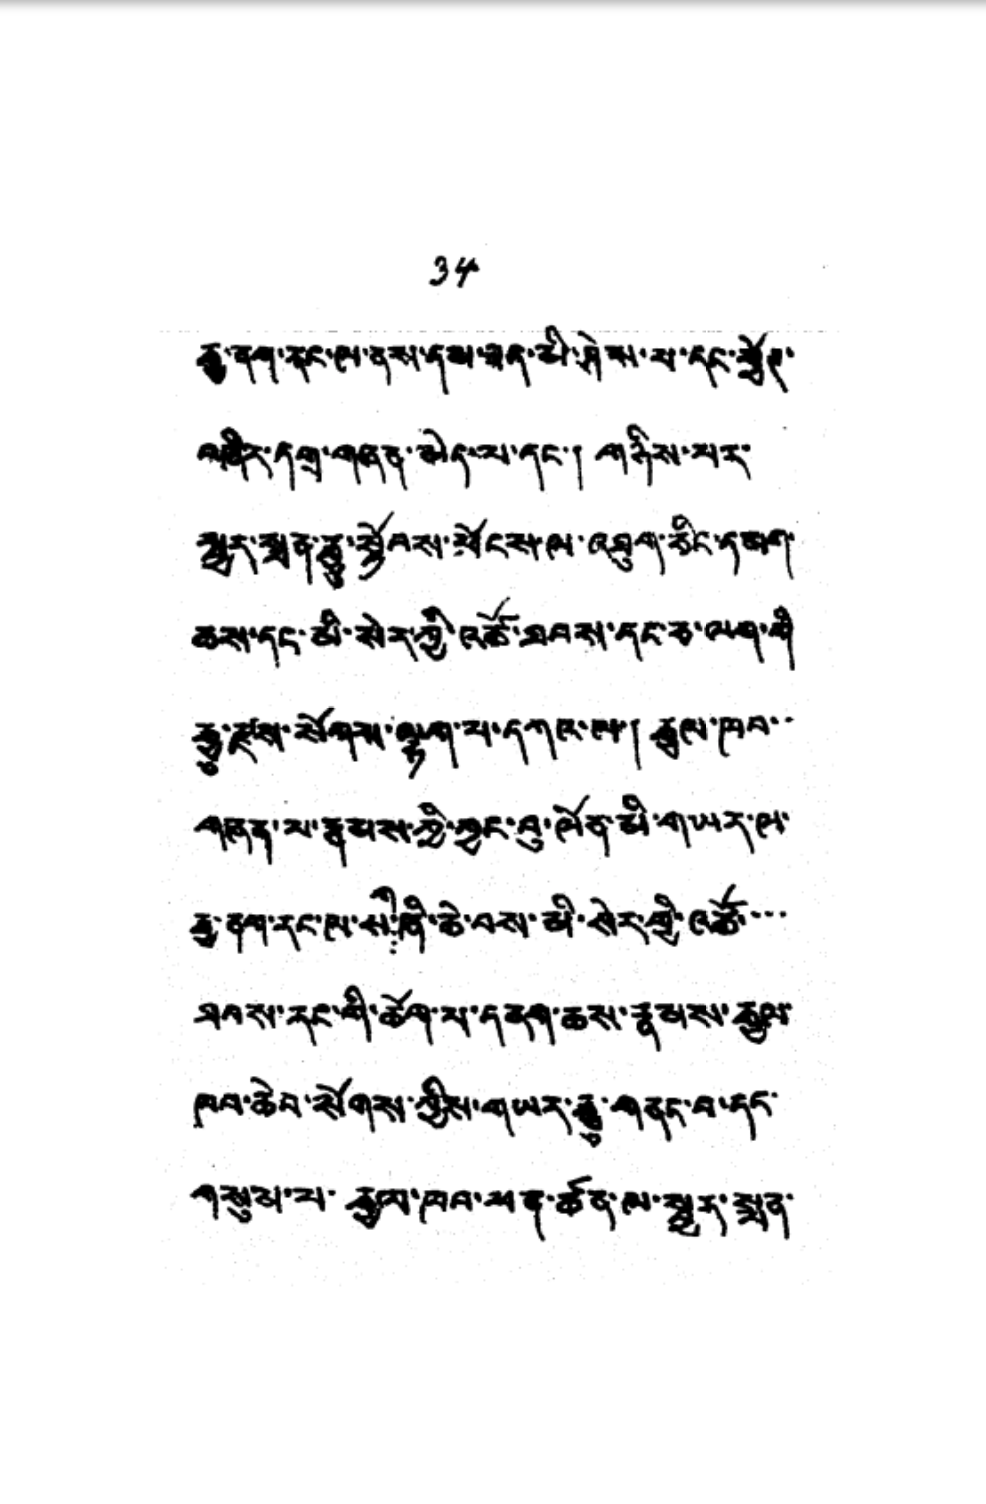 34
རྒྱ་ནག་རང་ལ་ནས་དམ་བན་མི་ཤེས་པ་དང་སྤྱོད་
བཟིར་དགྲ་གཞན་མེད་པ་དང་། གཉིས་པར་
སྐྱར་སྨན་རྒྱུ་སྟོབས་ལོངས་ལ་འཇུག་ཅིང་དམག་
ཆས་དང་མི་སེར་ཀྱི་འཚོ་ཐབས་དང་ཅ་ལག་གི་
རྒྱུ་རྫས་སོགས་ལྷག་པ་དཀའ་ལ། རྒྱལ་ཁབ་
གཞན་པ་རྣམས་ཀྱི་ཀྱང་བུ་ལོན་མི་གཡར་ལ་
རྒྱ་ནག་རང་ལ་ས་གཞི་ཆེ་བས་མི་སེར་གྱི་འཚོ་
ཐབས་རང་གི་ཚོག་པ་དམག་ཆས་རྣམས་རྒྱལ་
ཁབ་ཆེབ་སོགས་ཀྱིས་གཡར་རྒྱུ་གནང་བ་དང་
གསུམ་པ་ རྒྱལ་ཁབ་ཕན་ཚོན་ལ་སྐྱར་སྨན་